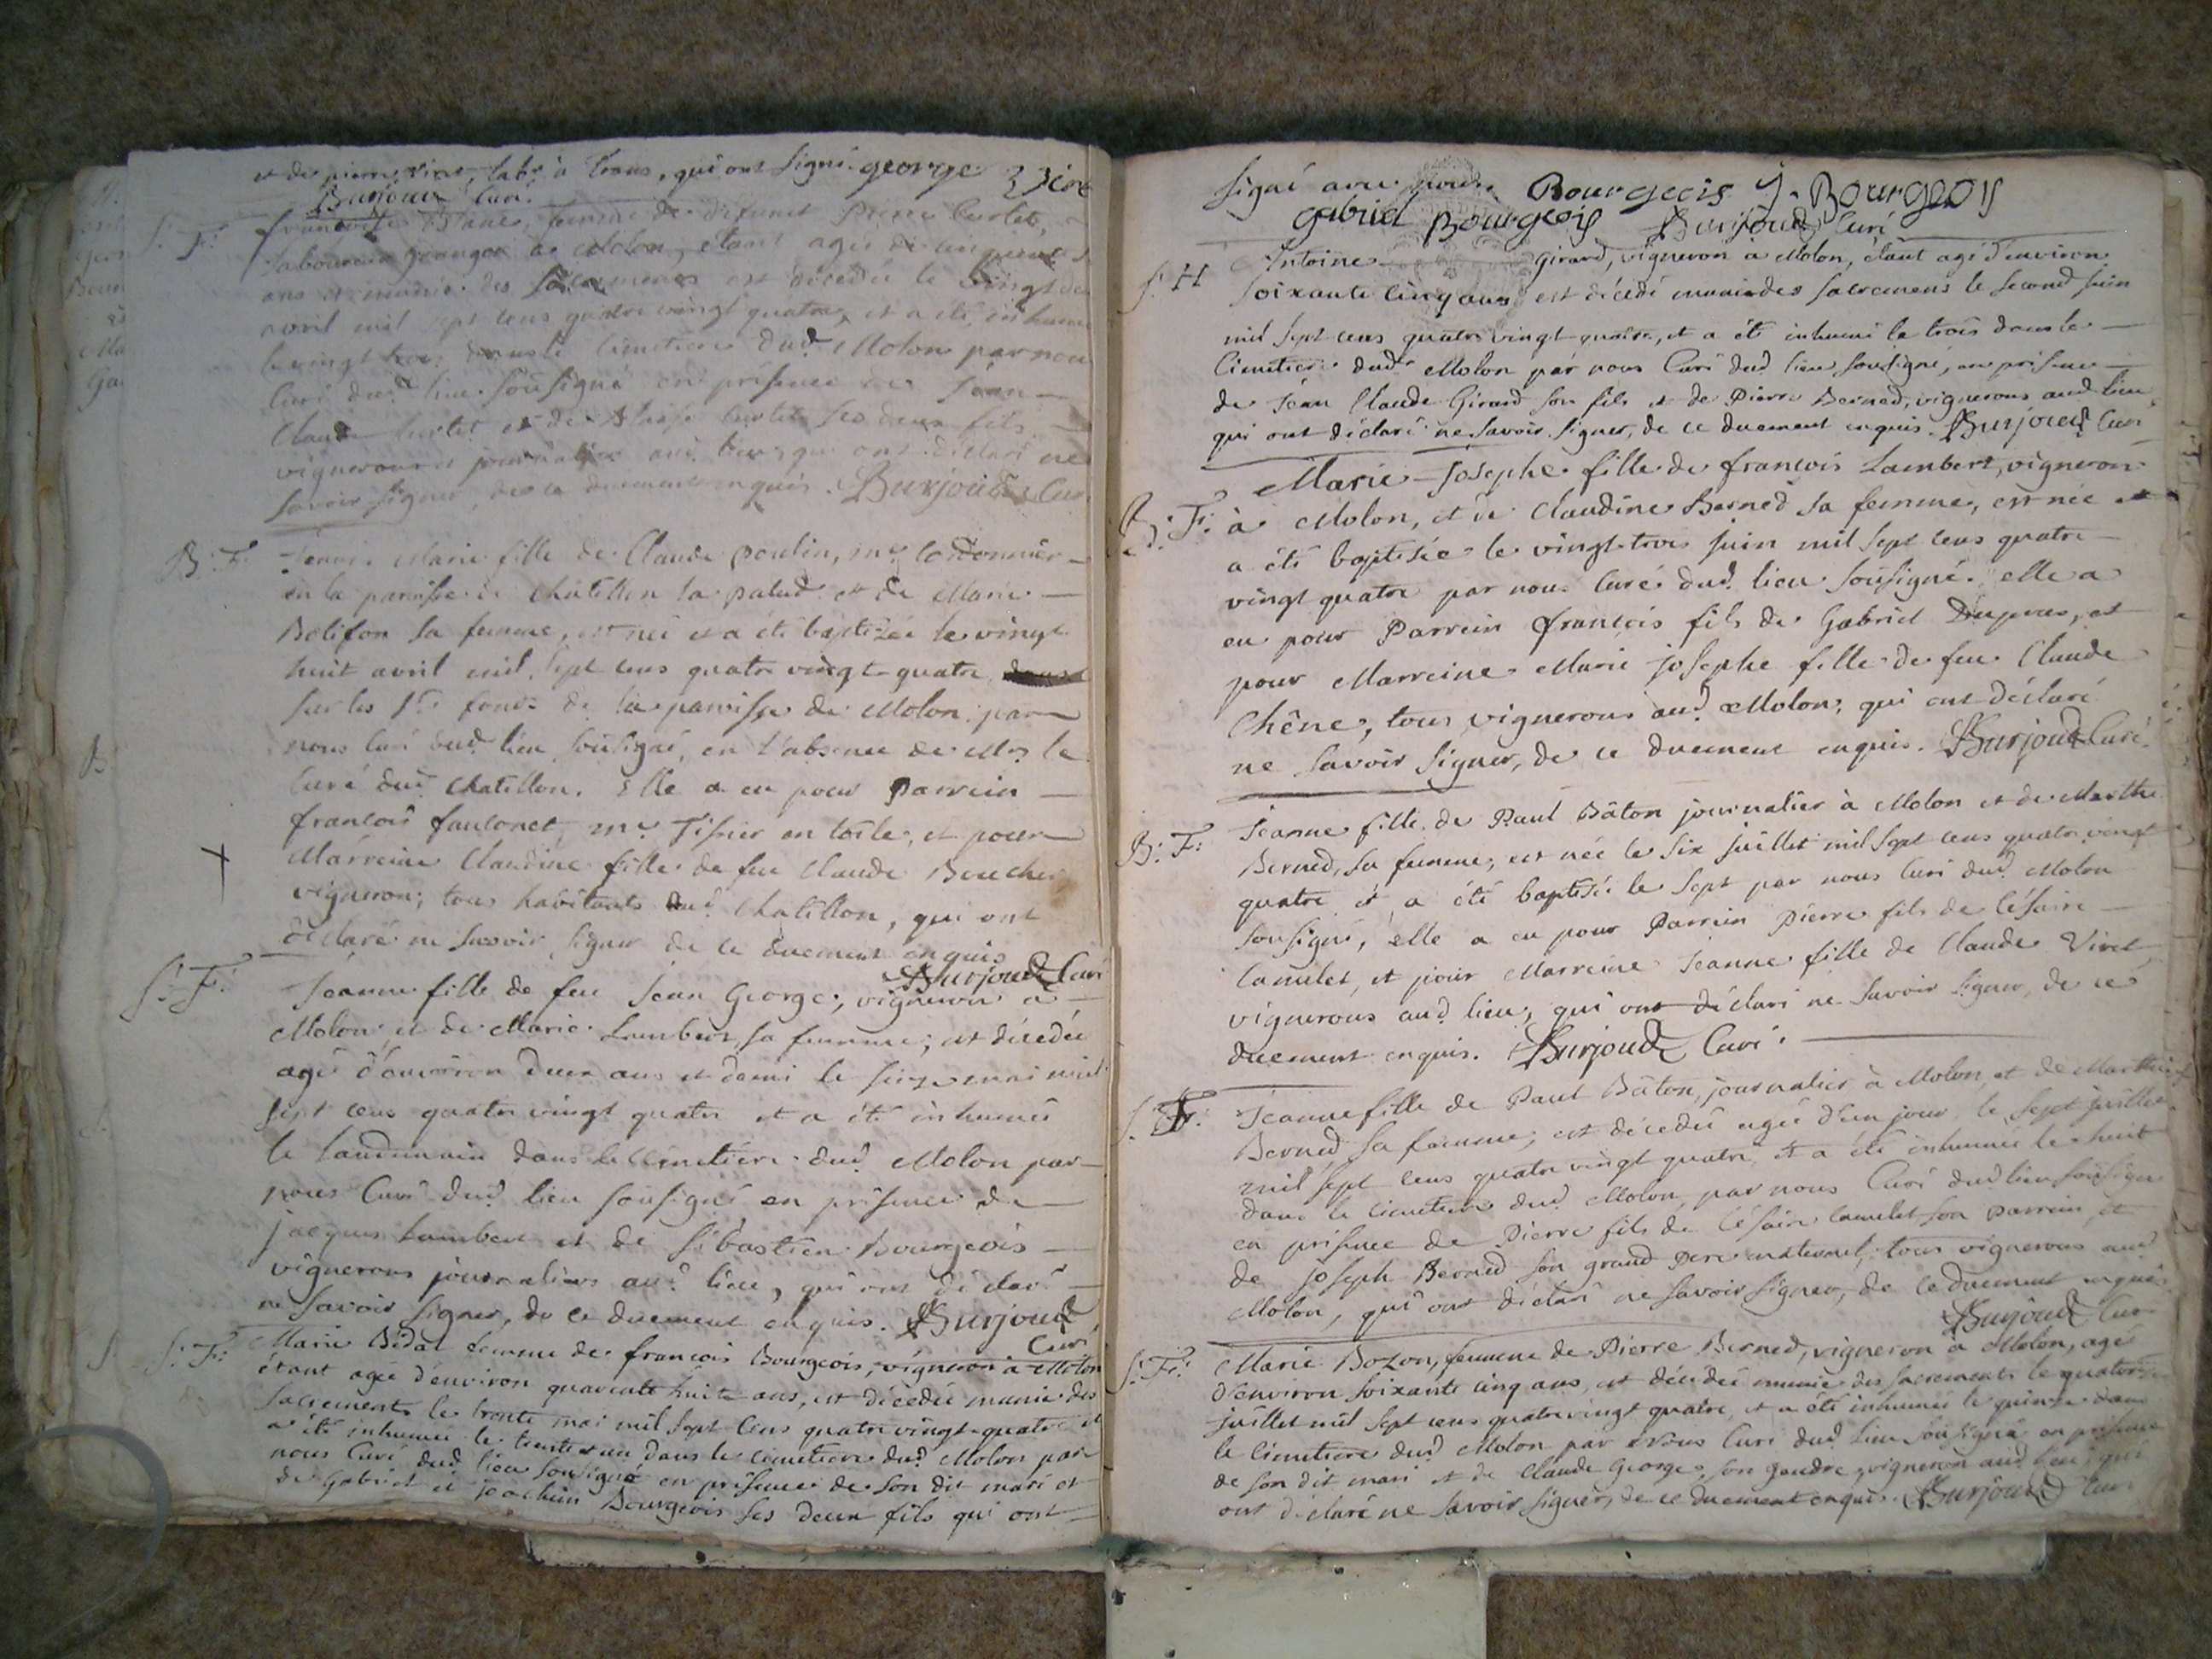 et de pierre Viret, labr à Crans, qui ont signé. george
Burjoud Curé
S: F: françoise femme de défunt Pierre Curlet,
laboureur granger à Molon, étant agée de cinquante
ans et munie des Sacremens est décédée le vingt deux
avril mil sept cens quatre vingt quatre, et a été inhumée
le vingt trois dans le Cimetiere dud. Molon par nous
Curé dud. lieu soussigné en présence de Jean
Claude Curlet et de Curlet ses deux fils
vignerons et journaliers aud. lieu, qui ont déclaré ne
savoir signer, de ce duement enquis. Burjoud Curé
B: F: Jenni Marie fille de Claude poulin, me Cordonnier
en la paroisse de Châtillon la palud et de Marie
Bolison sa femme, est née et a été baptisée le vingt
huit avril mil sept cens quatre vingt quatre
sur les Sts fonds de la paroisse de Molon par
nous Curé dud. lieu soussigné, en l'absence de Mr le
Curé dud. Chatillon. Elle a eu pour Parrein
françois fauconet, me Tissier en toile, et pour
Marreine Claudine fille de feu Claude Boucher
vigneron; tous habitants dud. Chatillon, qui ont
déclaré ne savoir signer de ce duement enquis
Burjoud Curé
S: F: Jeanne fille de feu Jean George, vigneron à
Molon, et de Marie Lambert, sa femme, est décédée
agée d'environ deux ans et demi le seize mai mil
sept cens quatre vingt quatre et a été inhumée
le landemain dans le Cimetiere dud. Molon par
nous Curé dud. lieu soussigné en présence de
jacques Lambert et de Sébastien Bourgeois
vignerons journaliers aud. lieu, qui ont déclaré
ne savoir signer, de ce duement enquis. Burjoud
Curé
S: F: Marie Bidat femme de françois Bourgeois, vigneron à Molon
étant agée d'environ quarante huit ans, est décédée munie des
Sacrements le trente mai mil sept cens quatre vingt quatre et
a été inhumée le trente et un dans le cimetiere dud. Molon par
nous Curé dud. lieu soussigné en présence de son dit mari et
de Gabriel et joachim Bourgeois ses deux fils qui ont
signé avec nous. Bourgeois J. Bourgeois
gabriel Bourgeois Burjoud Curé
S: H Antoine Girard, vigneron à Molon, étant agé d'environ
soixante cinq ans est décédé muni des sacremens le second juin
mil sept cens quatre vingt quatre, et a été inhumé le trois dans le
Cimetiere dud. Molon par nous Curé dud. lieu soussigné, en présence
de Jean Claude Girard son fils et de Pierre Berned, vignerons aud. lieu
qui ont déclaré ne savoir signer, de ce duement enquis. Burjoud Curé
B: F: Marie-Josephe fille de françois Lambert, vigneron
à Molon, et de Claudine Berned sa femme, est née et
a été baptisée le vingt-trois juin mil sept cens quatre
vingt quatre par nous Curé dud. lieu soussigné. elle a
eu pour Parrein françois fils de Gabriel Dupras, et
pour Marreine Marie josephe fille de feu Claude
Chêne, tous vignerons aud. Molon, qui ont déclaré
ne savoir signer, de ce duement enquis. Burjoud Curé.
B: F: Jeanne fille de Paul Bâton journalier à Molon et de Marthe
Berned, sa femme, est née le six juillet mil sept cens quatre vingt
quatre et a été baptisée le sept par nous Curé dud. Molon
soussigné, elle a eu pour Parrein pierre fils de Césaire
Camelet, et pour Marreine Jeanne fille de Claude Viret
vignerons aud. lieu, qui ont déclaré ne savoir signer, de ce
duement enquis. Burjoud Curé.
S: F: Jeanne fille de Paul Bâton, journalier à Molon et de Marthe
Berned sa femme, est décédée agée d'un jour, le sept juillet
mil sept cens quatre vingt quatre, et a été inhumée le huit
dans le cimetiere dud. Molon, par nous Curé dud. lieu soussigné
en présence de Pierre fils de Césaire Camelet son parrein, et
de joseph Berned son grand pere maternel, tous vignerons aud.
Molon, qui ont déclaré ne savoir signer, de ce duement enquis
Burjoud Curé
S: F: Marie Bozon, femme de Pierre Berned, vigneron à Molon, agée
d'environ soixante cinq ans, est décédée munie des sacrements le quatorze
juillet mil sept cens quatre vingt quatre, et a été inhumée le quinze dans
le Cimetiere dud. Molon par Nous Curé dud. lieu soussigné en présence
de son dit mari et de Claude George, son gendre, vigneron aud. lieu, qui
ont déclaré ne savoir signer, de ce duement enquis. Burjoud Curé